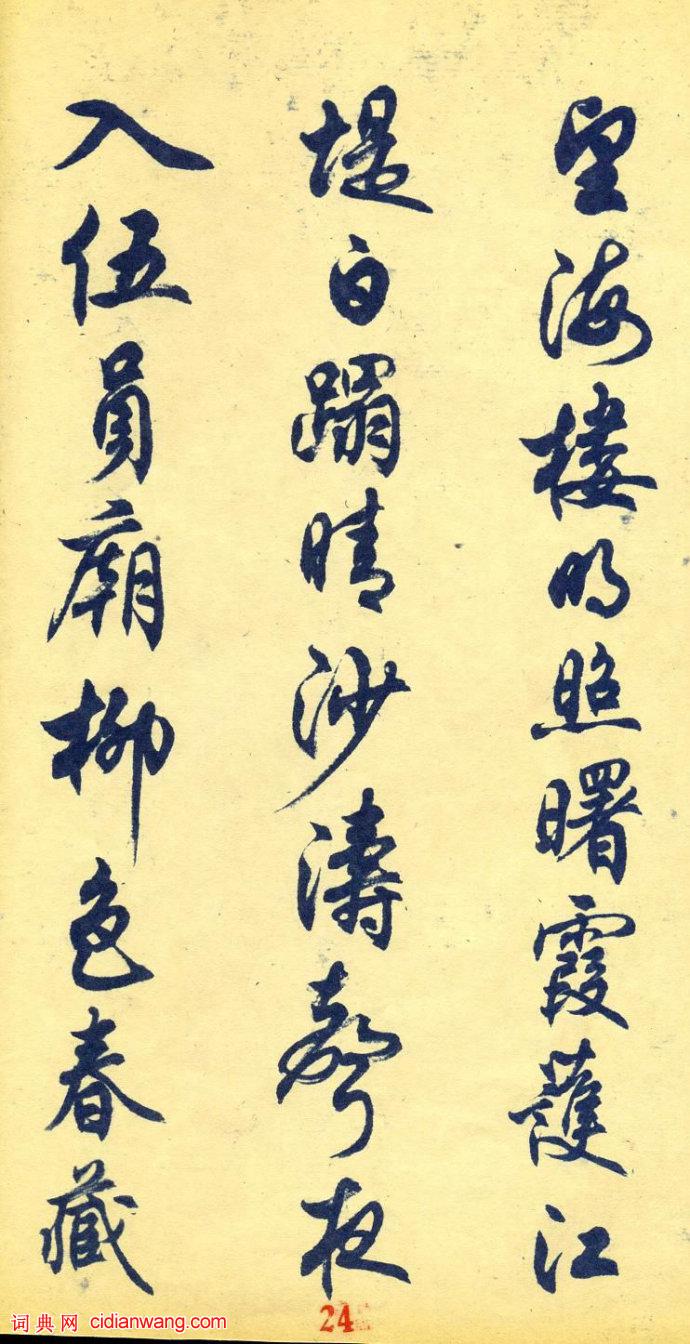 望海樓明照曙霞護江
堤白蹋晴沙濤聲夜
入伍員廟柳色春藏
24
词典网 cidianwang.com